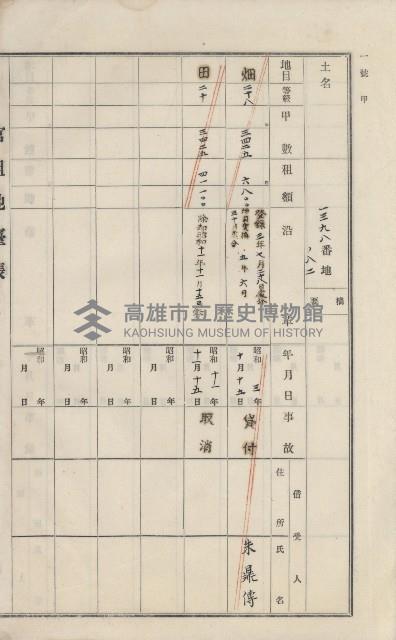 一號甲
土名
一三九八番地
ノ八二
摘要
地目 等級 甲數 租額 沿革 年月日 事故 借受人 住所 氏名
畑 二十八 三四二五 六八〇〇 昭和三年十月十五日 貸付 朱鼎傳
田 二十 三四二五 四一一〇〇 除却昭和十一年十一月十五日 昭和十一年十一月十五日 取消
昭和 年 月 日
昭和 年 月 日
昭和 年 月 日
昭和 年 月 日
官租地臺帳
高雄市立歷史博物館
KAOHSIUNG MUSEUM OF HISTORY